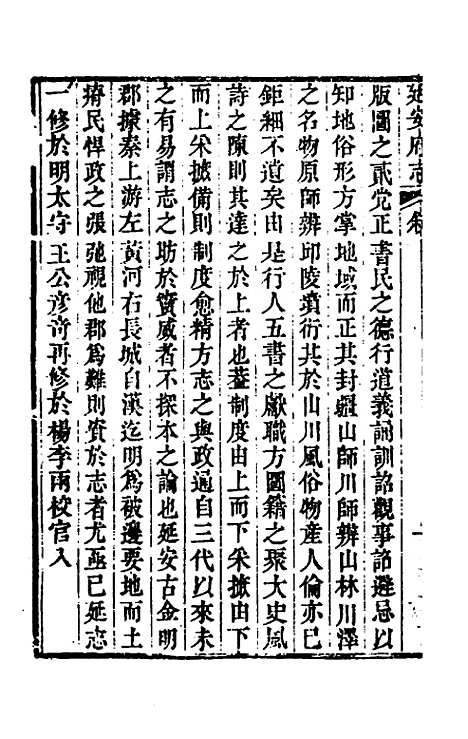 延安府志
版圖之貳党正書民之德行道義誦訓詔觀事詔避忌以
知地俗形方掌地域而正其封疆山師川師辨山林川澤
之名物原師辨邱陵墳衍其於山川風俗物產人倫亦已
鉅細不遺矣由是行人五書之獻職方圖籍之聚大史風
詩之陳則其達之於上者也葢制度由上而下采摭由下
而上采摭備則制度愈精方志之與政通自三代以來未
之有易謂志之昉於竇威者不探本之論也延安古金明
郡據秦上游左黃河右長城自漢迄明爲被邊要地而土
瘠民悍政之張弛視他郡爲難則資於志者尤亟已延志
一修於明太守王公彦竒再修於楊李兩校官入